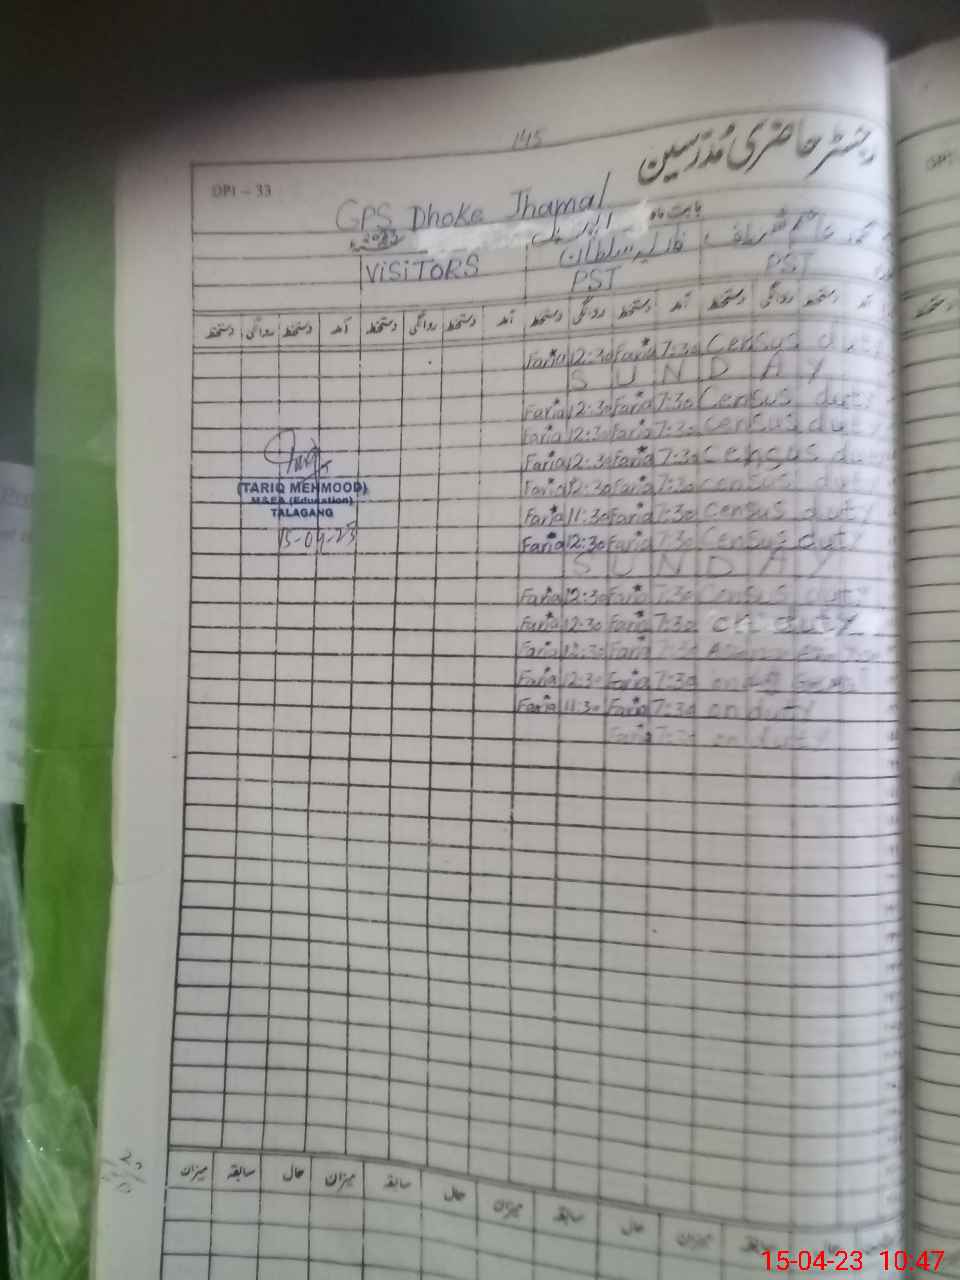 145
رجسٹر حاضری مدرسین
DPI – 33
GPS Dhoke Jhamal
بابت ماہ اپریل 2023
VISITORS
فاریہ سلطان
PST
PST
آمد دستخط روانگی دستخط آمد دستخط روانگی دستخط آمد دستخط روانگی دستخط آمد دستخط روانگی دستخط
Census duty 7:30 Faria 12:30 Faria
SUNDAY
Census duty 7:30 Faria 12:30 Faria
Census duty 7:30 Faria 12:30 Faria
Census du 7:30 Faria 12:30 Faria
Census duty 7:30 Faria 12:30 Faria
Census duty 7:30 Faria 11:30 Faria
Census duty 7:30 Faria 12:30 Faria
SUNDAY
Census duty 7:30 Faria 12:30 Faria
on duty 7:30 Faria 12:30 Faria
7:30 Faria 12:30 Faria
7:30 Faria 12:30 Faria
on duty 7:30 Faria 11:30 Faria
on duty 7:30 Faria
(TARIQ MEHMOOD)
M&EA (Education)
TALAGANG
15-04-23
حال سابقہ میزان حال سابقہ میزان حال سابقہ میزان حال سابقہ میزان
15-04-23 10:47